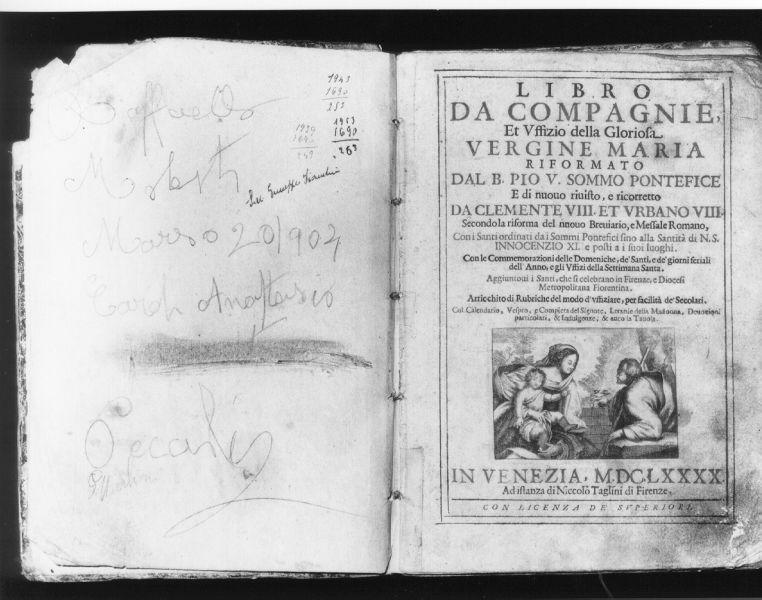 Raffaello
Marzo 20/904
1943
1690
253
1953
1690
263
LIBRO
DA COMPAGNIE,
Et Vffizio della Gloriosa
VERGINE MARIA
RIFORMATO
DAL B. PIO V. SOMMO PONTEFICE
E di nuouo riuisto, e ricorretto
DA CLEMENTE VIII. ET VRBANO VIII.
Secondo la riforma del nuouo Breuiario, e Messale Romano,
Con i Santi ordinati dai Sommi Pontefici sino alla Santità di N. S.
INNOCENZIO XI. e posti a i suoi luoghi.
Con le Commemorazioni delle Domeniche, de' Santi, e de' giorni feriali
dell' Anno, e gli Vffizi della Settimana Santa.
Aggiuntoui i Santi, che si celebrano in Firenze, e Diocesi
Metropolitana Fiorentina.
Arricchito di Rubriche del modo d'vffiziare, per facilità de' Secolari.
Col Calendario, Vespro, e Compieta del Signore, Letanie della Madonna, Deuozioni
particolari, & Indulgenze, & anco la Tauola.
IN VENEZIA, M.DC.LXXXX.
Ad istanza di Niccolò Taglini di Firenze,
CON LICENZA DE' SVPERIORI.